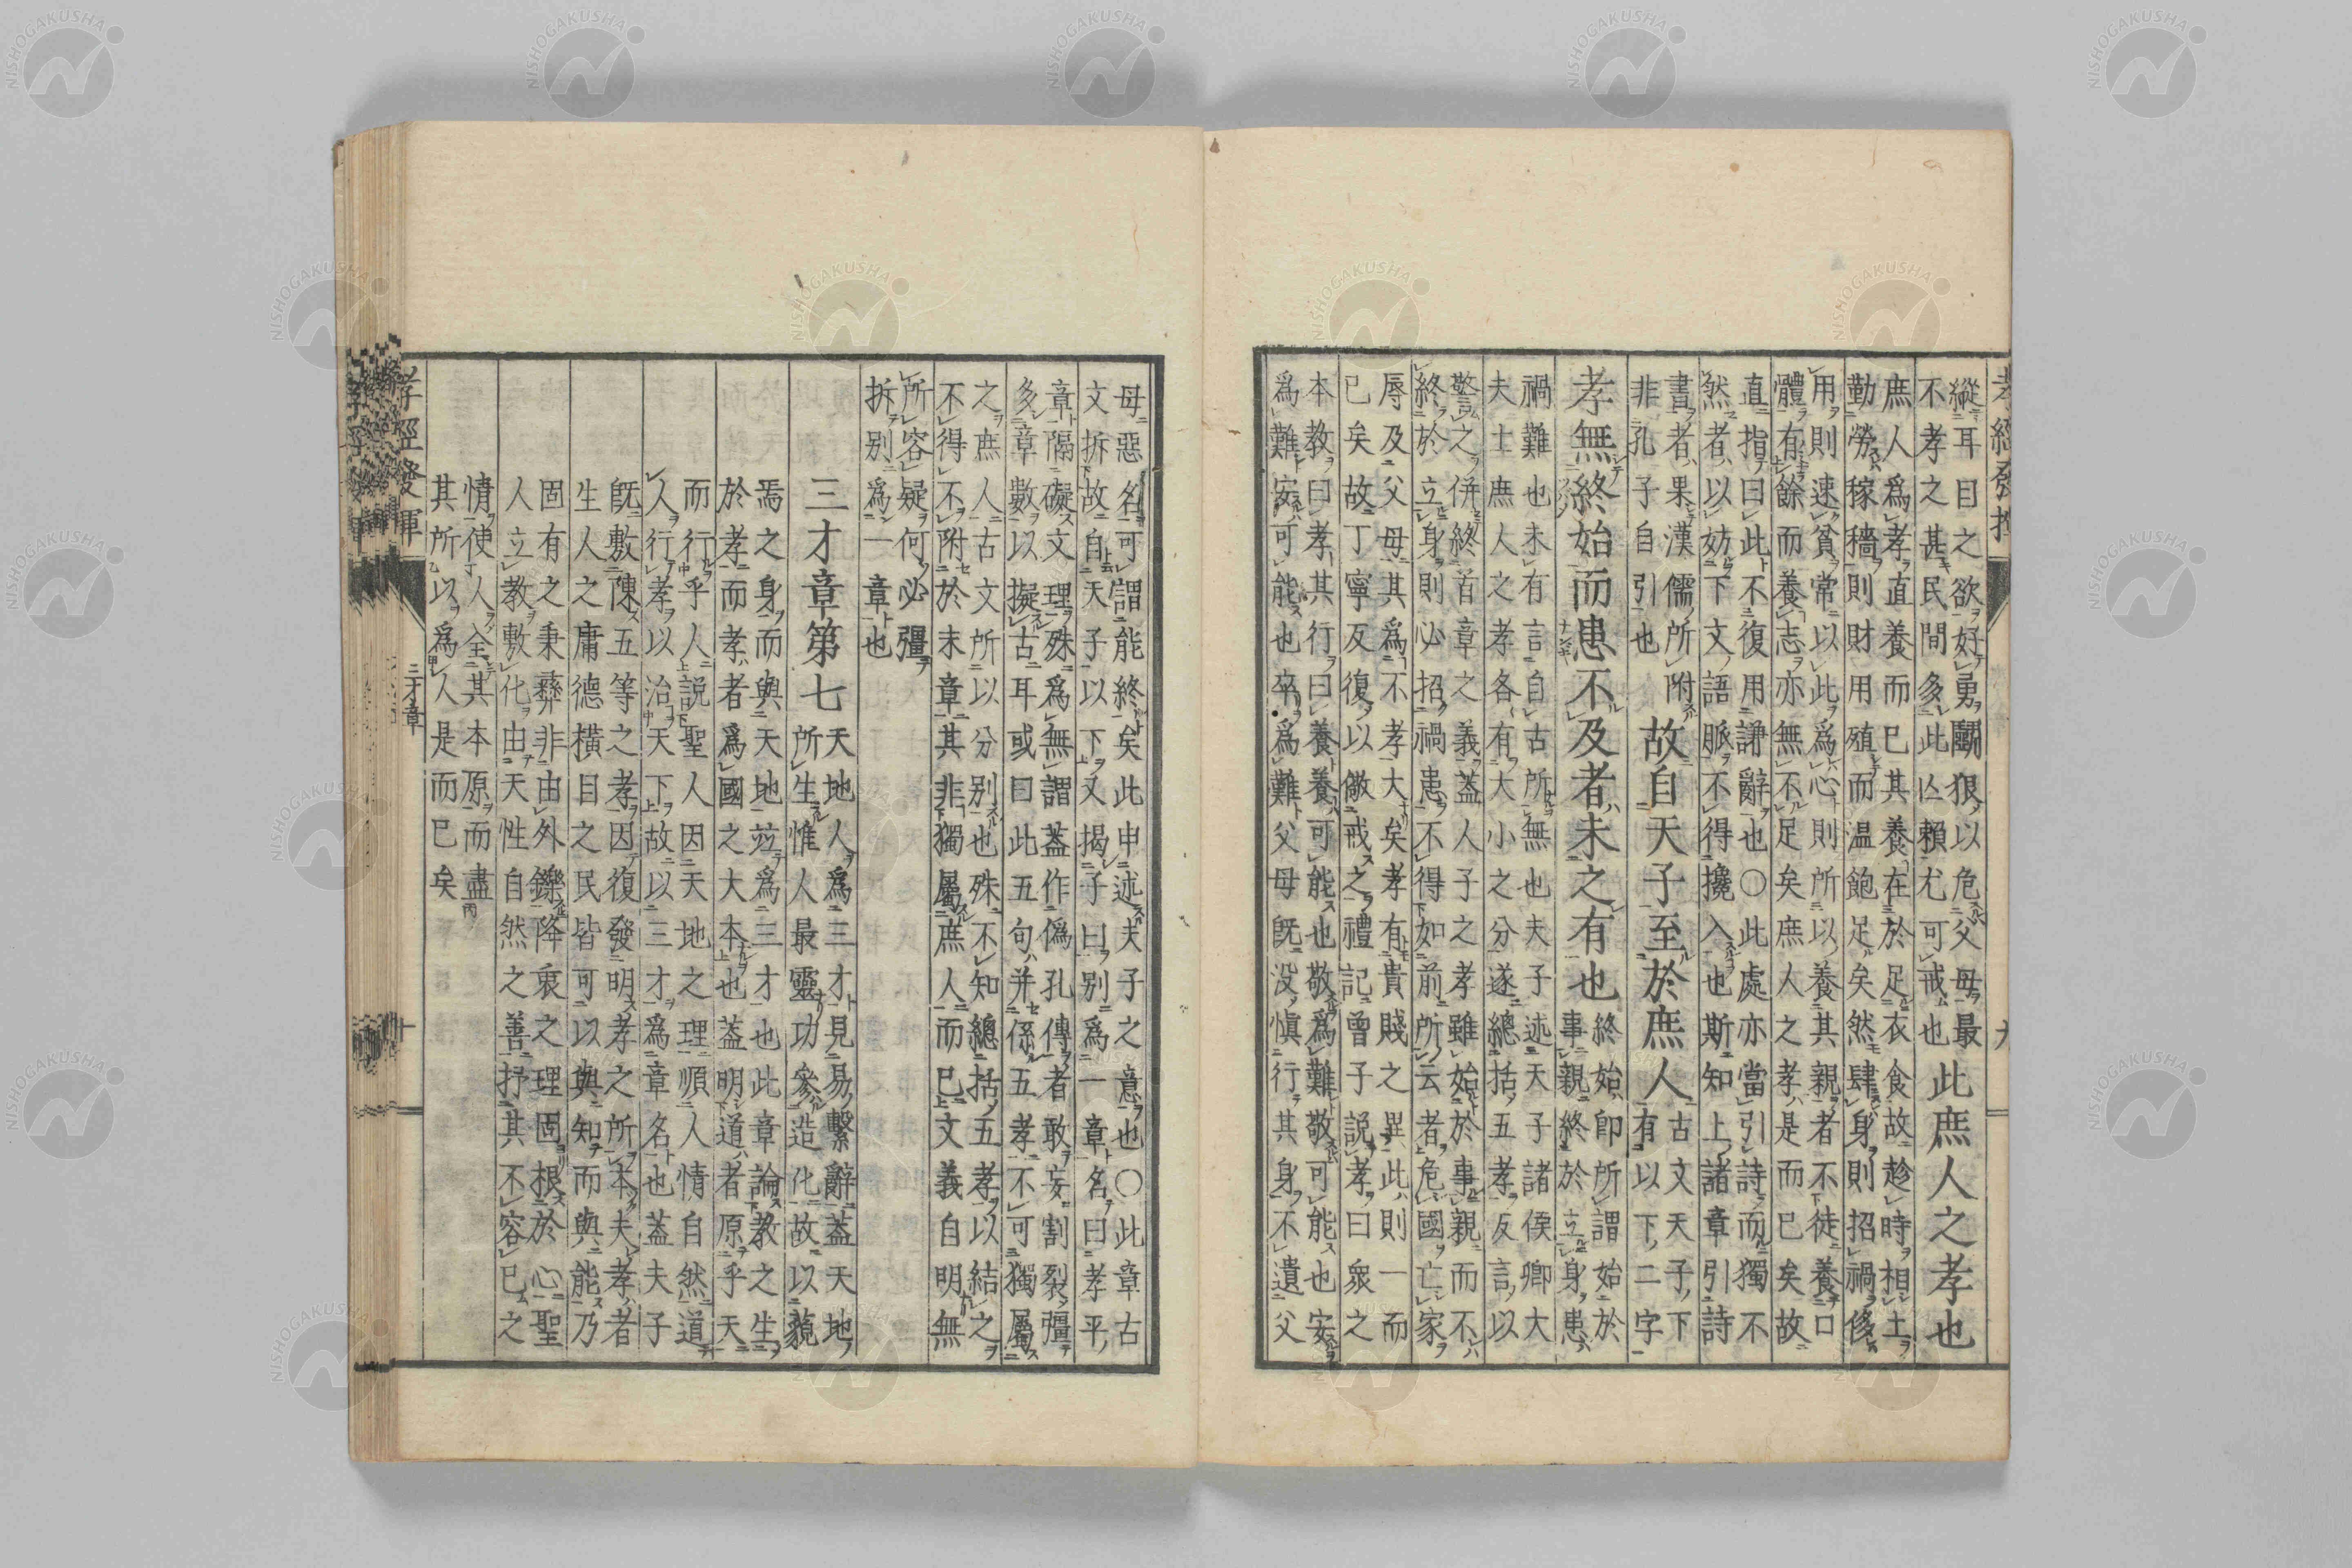 縱耳目之欲好勇鬬狠以危父母最
不孝之甚民間多此亾賴尤可戒也
此庶人之孝也
庶人爲孝直養而已其養在於足衣食故趁時相土
勤勞稼穡則財用殖而温飽足矣然肆身則招禍侈
用則速貧常以此爲心則所以養其親者不徒養口
體有餘而養志亦無不足矣庶人之孝是而已矣故
直指曰此不復用謙辭也〇此處亦當引詩而獨不
然者以妨下文語脈不得攙入也斯知上諸章引詩
書者果漢儒所附
非孔子自引也
故自天子至於庶人
古文天子下
有以下二字
孝無終始而患不及者未之有也
終始卽所謂始於
事親終於立身患
禍難也未有言自古所無也夫子述天子諸侯卿大
夫士庶人之孝各有大小之分遂總括五孝反言以
警之併終首章之義蓋人子之孝雖始於事親而不
終於立身則必招禍患不得如前所云者危國亡家
辱及父母其爲不孝大矣孝有貴賤之異此則一而
已矣故丁寧反復以儆戒之禮記曾子説孝曰衆之
本教曰孝其行曰養養可能也敬爲難敬可能也安
爲難安可能也卒爲難父母旣没愼行其身不遺父
孝經發揮
九
母惡名可謂能終矣此申述夫子之意也〇此章古
文拆故自天子以下又揭子曰别爲一章名曰孝平
章隔礙文理殊爲無謂蓋作僞孔傳者敢妄割裂彊
多章數以擬古耳或曰此五句并係五孝不可獨屬
之庶人古文所以分别也殊不知總括五孝以結之
不得不附於末章其非獨屬庶人而已文義自明無
所容疑何必彊
拆别爲一章也
三才章第七
天地人爲三才見易繫辭蓋天地
所生惟人最靈功參造化故以藐
焉之身而與天地竝爲三才也此章論教之生
於孝而孝者爲國之大本也蓋明道者原乎天
而行乎人説聖人因天地之理順人情自然道
人行孝以治天下故以三才爲章名也蓋夫子
旣敷陳五等之孝因復發明孝之所本夫孝者
生人之庸德橫目之民皆可以與知而與能乃
固有之秉彝非由外鑠降衷之理固根於心聖
人立教敷化由天性自然之善抒其不容已之
情使人全其本原而盡
其所以爲人是而已矣
孝經發揮
三才章